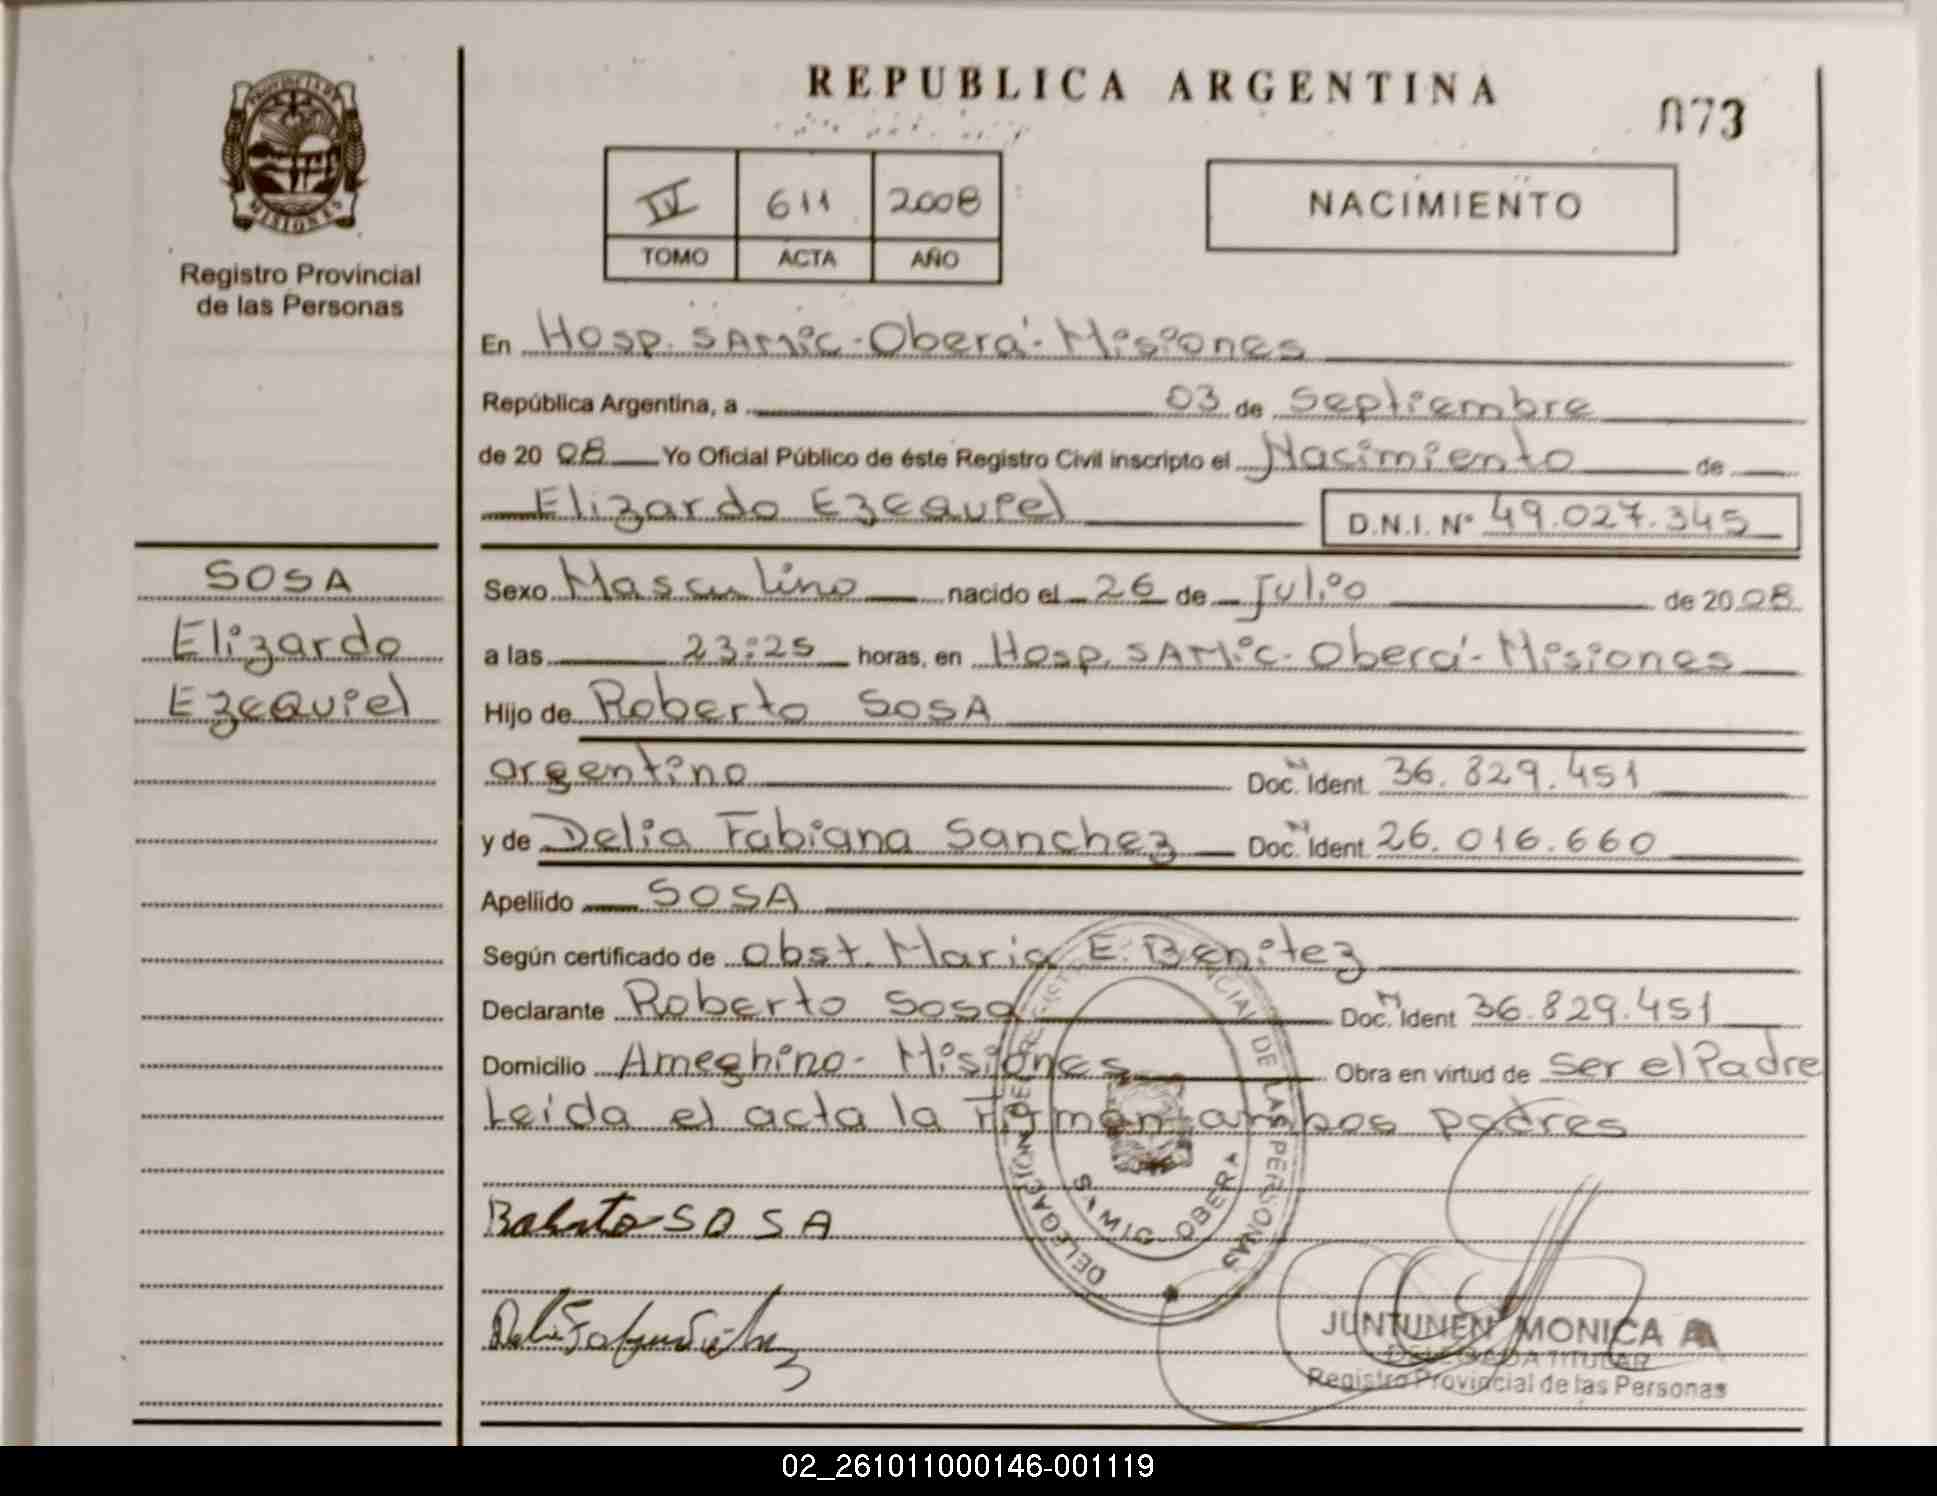 REPUBLICA ARGENTINA
073
PROVINCIA DE MISIONES
Registro Provincial
de las Personas
IV 611 2008
TOMO ACTA AÑO
NACIMIENTO
En Hosp. SAMic - Oberá - Misiones
República Argentina, a 03 de Septiembre
de 20 08 Yo Oficial Público de éste Registro Civil inscripto el Nacimiento de
Elizardo Ezequiel D.N.I. Nº 49.027.345
SOSA
Elizardo
Ezequiel
Sexo Masculino nacido el 26 de Julio de 20 08
a las 23:25 horas, en Hosp. SAMic - Oberá - Misiones
Hijo de Roberto SOSA
argentino Doc. N Ident. 36.829.451
y de Delia Fabiana Sanchez Doc. N Ident. 26.016.660
Apellido SOSA
Según certificado de Obst. Maria E. Benitez
Declarante Roberto Sosa Doc. N Ident 36.829.451
Domicilio Ameghino - Misiones Obra en virtud de Ser el Padre
Leida el acta la Firman ambos padres
SOSA
DELEGACION DEL REGISTRO PROVINCIAL DE LAS PERSONAS
SAMIC OBERA
JUNTUNEN MONICA A
DELEGADA TITULAR
Registro Provincial de las Personas
02_261011000146-001119